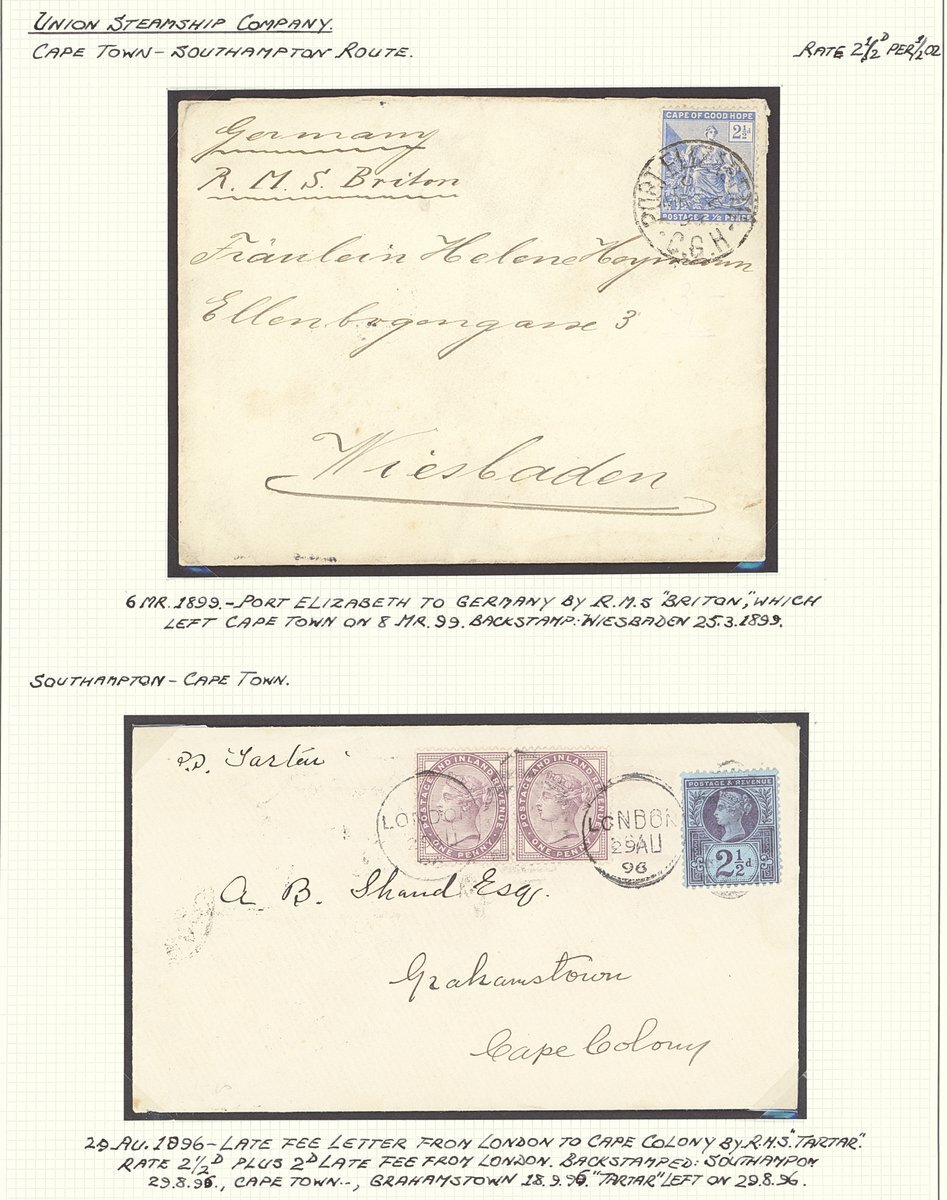 UNION STEAMSHIP COMPANY.
CAPE TOWN – SOUTHAMPTON ROUTE.
RATE 2½D PER ½ OZ
Germany
R. M. S. Briton
CAPE OF GOOD HOPE
2½d
POSTAGE 2½ PENCE
PORT ELIZABETH
C.G.H
Fräulein Helene Heymann
Ellenbogengasse 3
Wiesbaden
6 MR. 1899.– PORT ELIZABETH TO GERMANY BY R.M.S "BRITON", WHICH
LEFT CAPE TOWN ON 8 MR. 99. BACKSTAMP: WIESBADEN 25.3.1899.
SOUTHAMPTON – CAPE TOWN.
"Tartar"
POSTAGE AND INLAND REVENUE
ONE PENNY
POSTAGE AND INLAND REVENUE
ONE PENNY
LONDON
LONDON
29 AU
96
POSTAGE & REVENUE
2½d
A. B. Shand Esq.
Grahamstown
Cape Colony
29 AU. 1896 – LATE FEE LETTER FROM LONDON TO CAPE COLONY BY R.M.S. "TARTAR".
RATE 2½D PLUS 2D LATE FEE FROM LONDON. BACKSTAMPED: SOUTHAMPON
29.8.96., CAPE TOWN--, GRAHAMSTOWN 18.9.96. "TARTAR" LEFT ON 29.8.96.